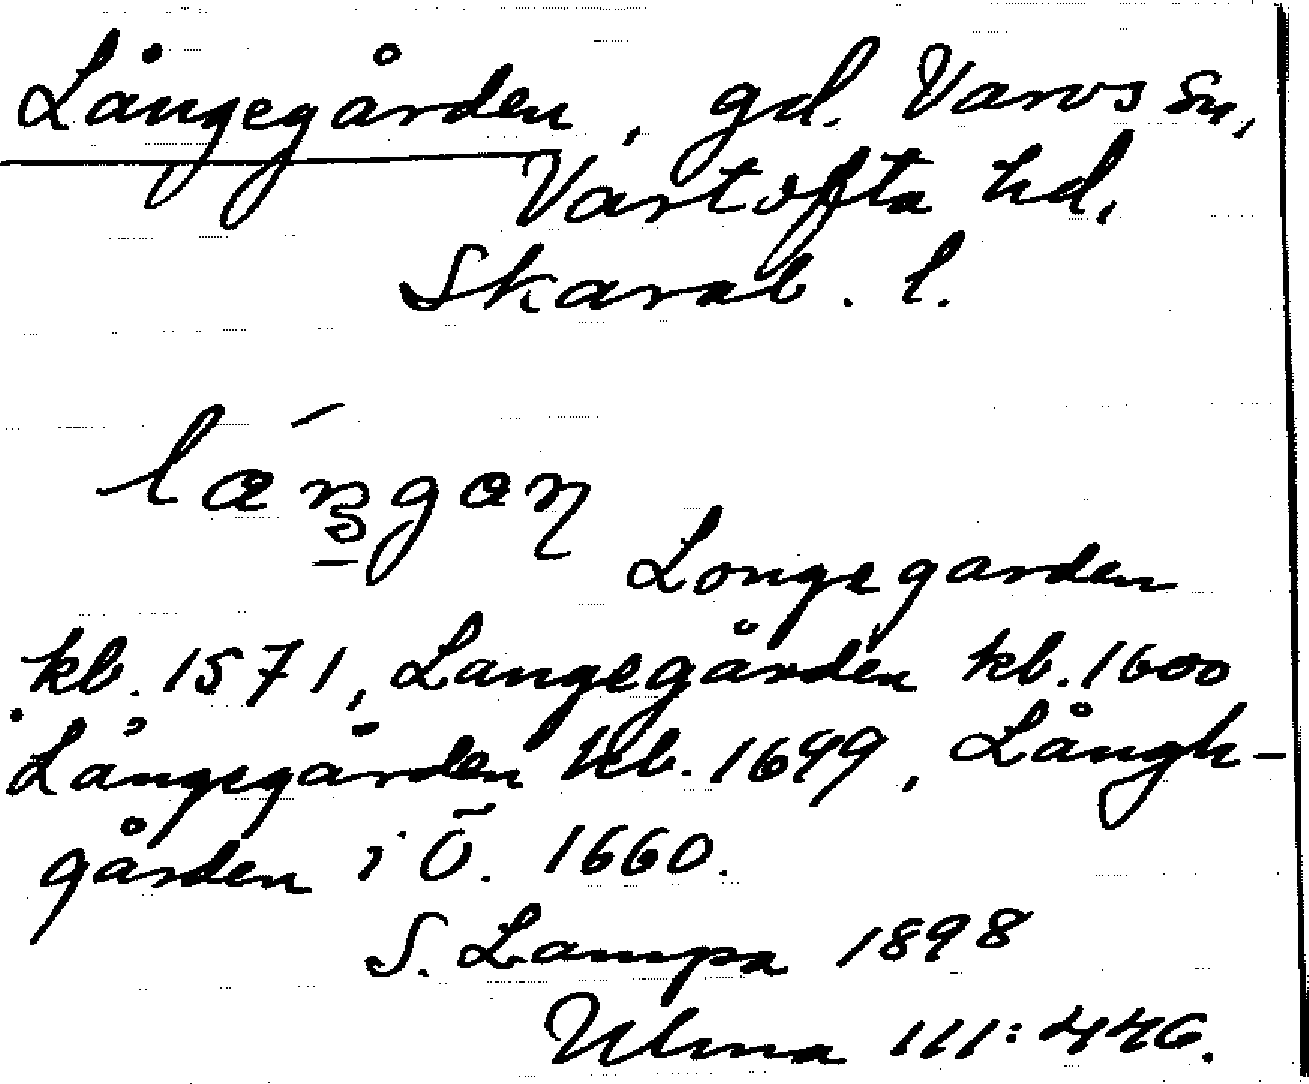 Långegården, gd. Varvs sn,
Vartofta hd,
Skarab. l.
Longegarden
kb. 1571, Langegården kb. 1600
Långegården kb. 1699, Långh-
gården i Ö. 1660.
S. Lampa 1898
Ulma 111:446.